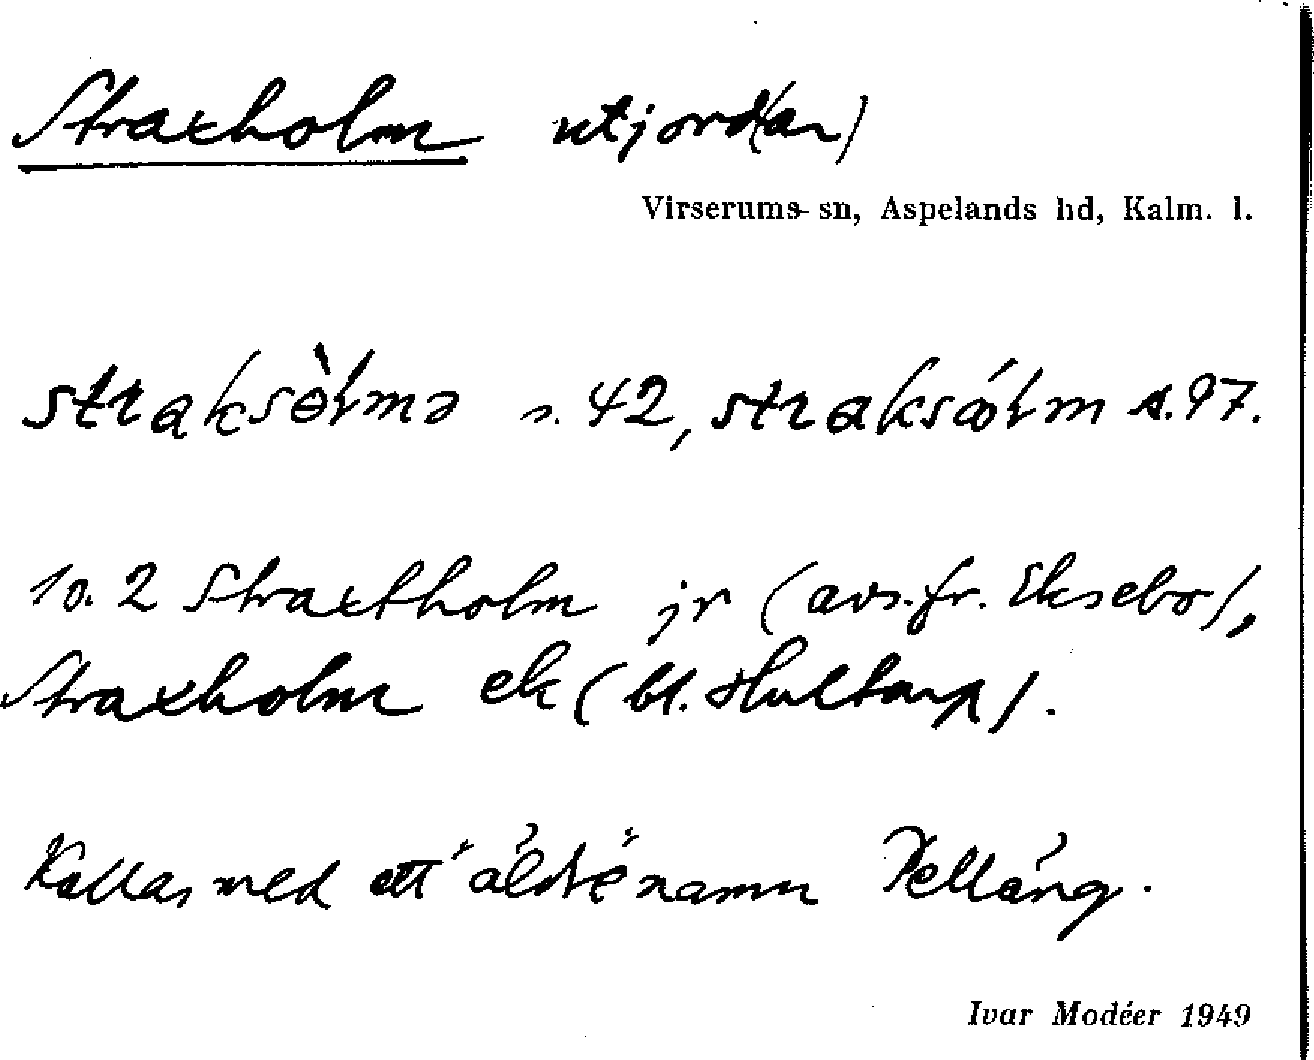 Straxholm utjord(ar)
Virserums sn, Aspelands hd, Kalm. l.
straksòłmə s. 42, straksółm s. 97.
10. 2 Straxtholm jr (avs. fr. Eksebo),
Straxholm ek (bl. Hultarp).
Kallas med ett "äldre" namn Kelläng.
Ivar Modéer 1949